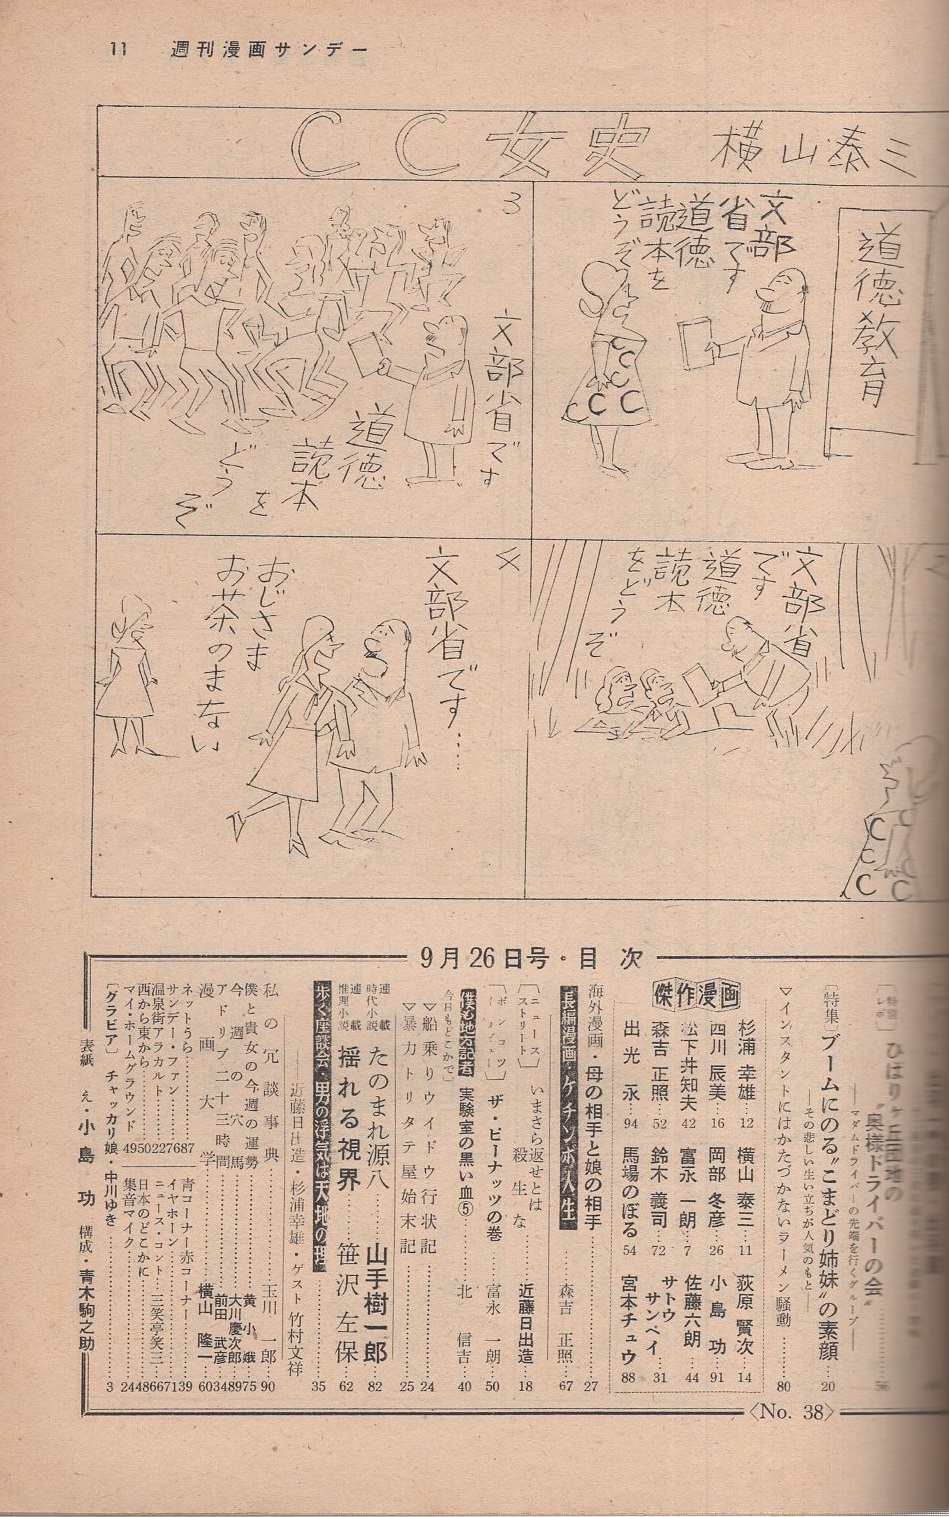 11 週刊漫画サンデー
CC女史 横山泰三
道徳教育
文部
省です
道徳
読本を
どうぞ
CCCCC
文部省
です
道徳
読本
をどうぞ
3
文部省です
道徳
読本
を
どうぞ
4
文部省です……
おじさま
お茶のまない
9月26日号・目次
ひばりヶ丘団地の
"奥様ドライバーの会"
―マダムドライバーの先端を行くグループ―
〔特集〕ブームにのる"こまどり姉妹"の素顔……20
―その悲しい生い立ちが人気のもと―
▽インスタントにはかたづかないラーメン騒動……80
傑作漫画
杉浦幸雄…12 横山泰三…11 荻原賢次…14
西川辰美…16 岡部冬彦…26 小島功…91
松下井知夫…42 富永一朗…7 佐藤六朗…44
森吉正照…52 鈴木義司…72 サトウサンペイ…31
出光永…94 馬場のぼる…54 宮本チュウ…88
海外漫画・母の相手と娘の相手……27
長編漫画・ケチンボ人生……森吉正照……67
〔ニュース/ストリート〕いまさら返せとは殺生な 近藤日出造……18
ザ・ピーナッツの巻 富永一朗……50
僕も地方記者 実験室の黒い血⑤……北信吉……40
今日もどこかで
▽船乗りウイドウ行状記……24
▽暴力トリタテ屋始末記……25
連載時代小説 たのまれ源八……山手樹一郎……82
連載推理小説 揺れる視界……笹沢左保……62
歩く座談会・男の浮気は天地の理……35
近藤日出造・杉浦幸雄・ゲスト 竹村文祥
私の冗談事典……玉川一郎……90
僕と貴女の今週の運勢……黄小娥……75
今週の穴馬……大川慶次郎……89
アドリブ二十三時間……前田武彦……34
漫画大学……横山隆一……60
ネットうら……87
サンデー・ファン……76
温泉街アラカルト……22
西から東から……50
マイ・ホームグラウンド……49
青コーナー赤コーナー……39
イヤホーン……71
ニュース・コント……三笑亭笑三……66
日本のどこかに……48
集音マイク……24
〔グラビア〕チャッカリ娘・中川ゆき……3
表紙 え・小島功 構成・青木駒之助
〈No. 38〉